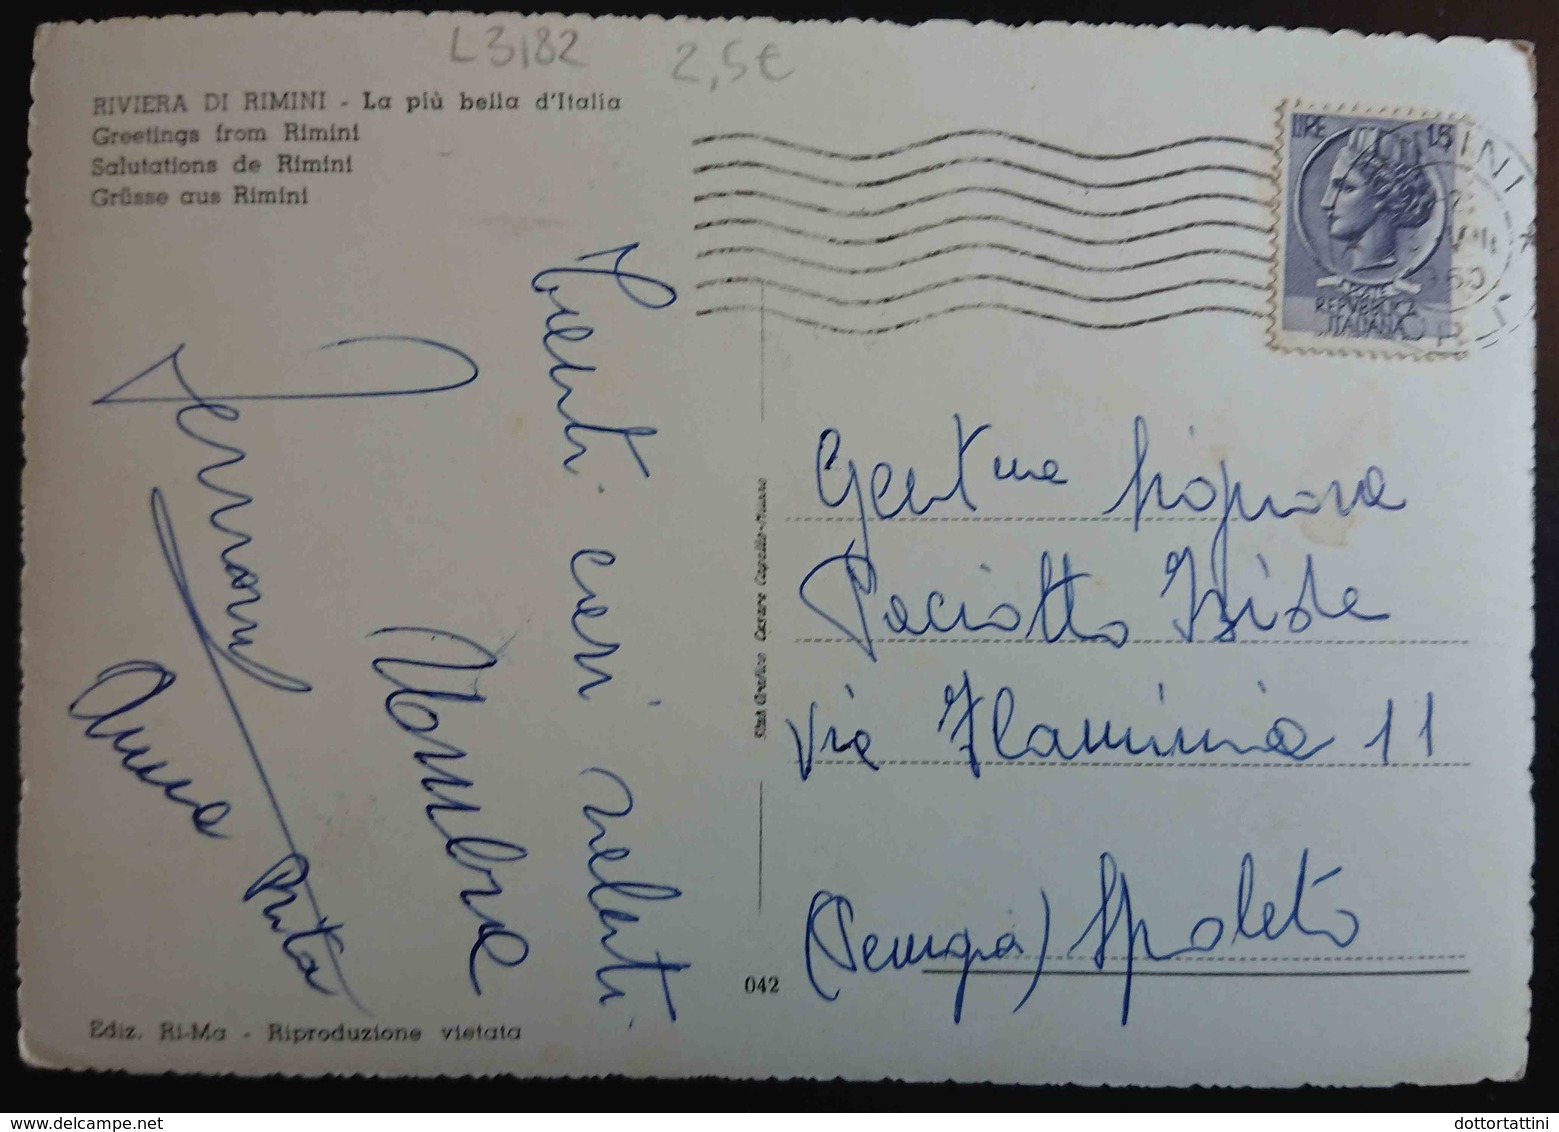 L3182
2,5€
RIVIERA DI RIMINI - La più bella d'Italia
Greetings from Rimini
Salutations de Rimini
Grüsse aus Rimini
LIRE 15
POSTE
REPVBBLICA
ITALIANA
cari saluti
Anna
Rita
Stab Grafico Cesare Capello-Milano
Gent.ma Signora
Paciotto Iside
via Flaminia 11
(Perugia) Spoleto
042
Ediz. Ri-Ma - Riproduzione vietata
dottortattini